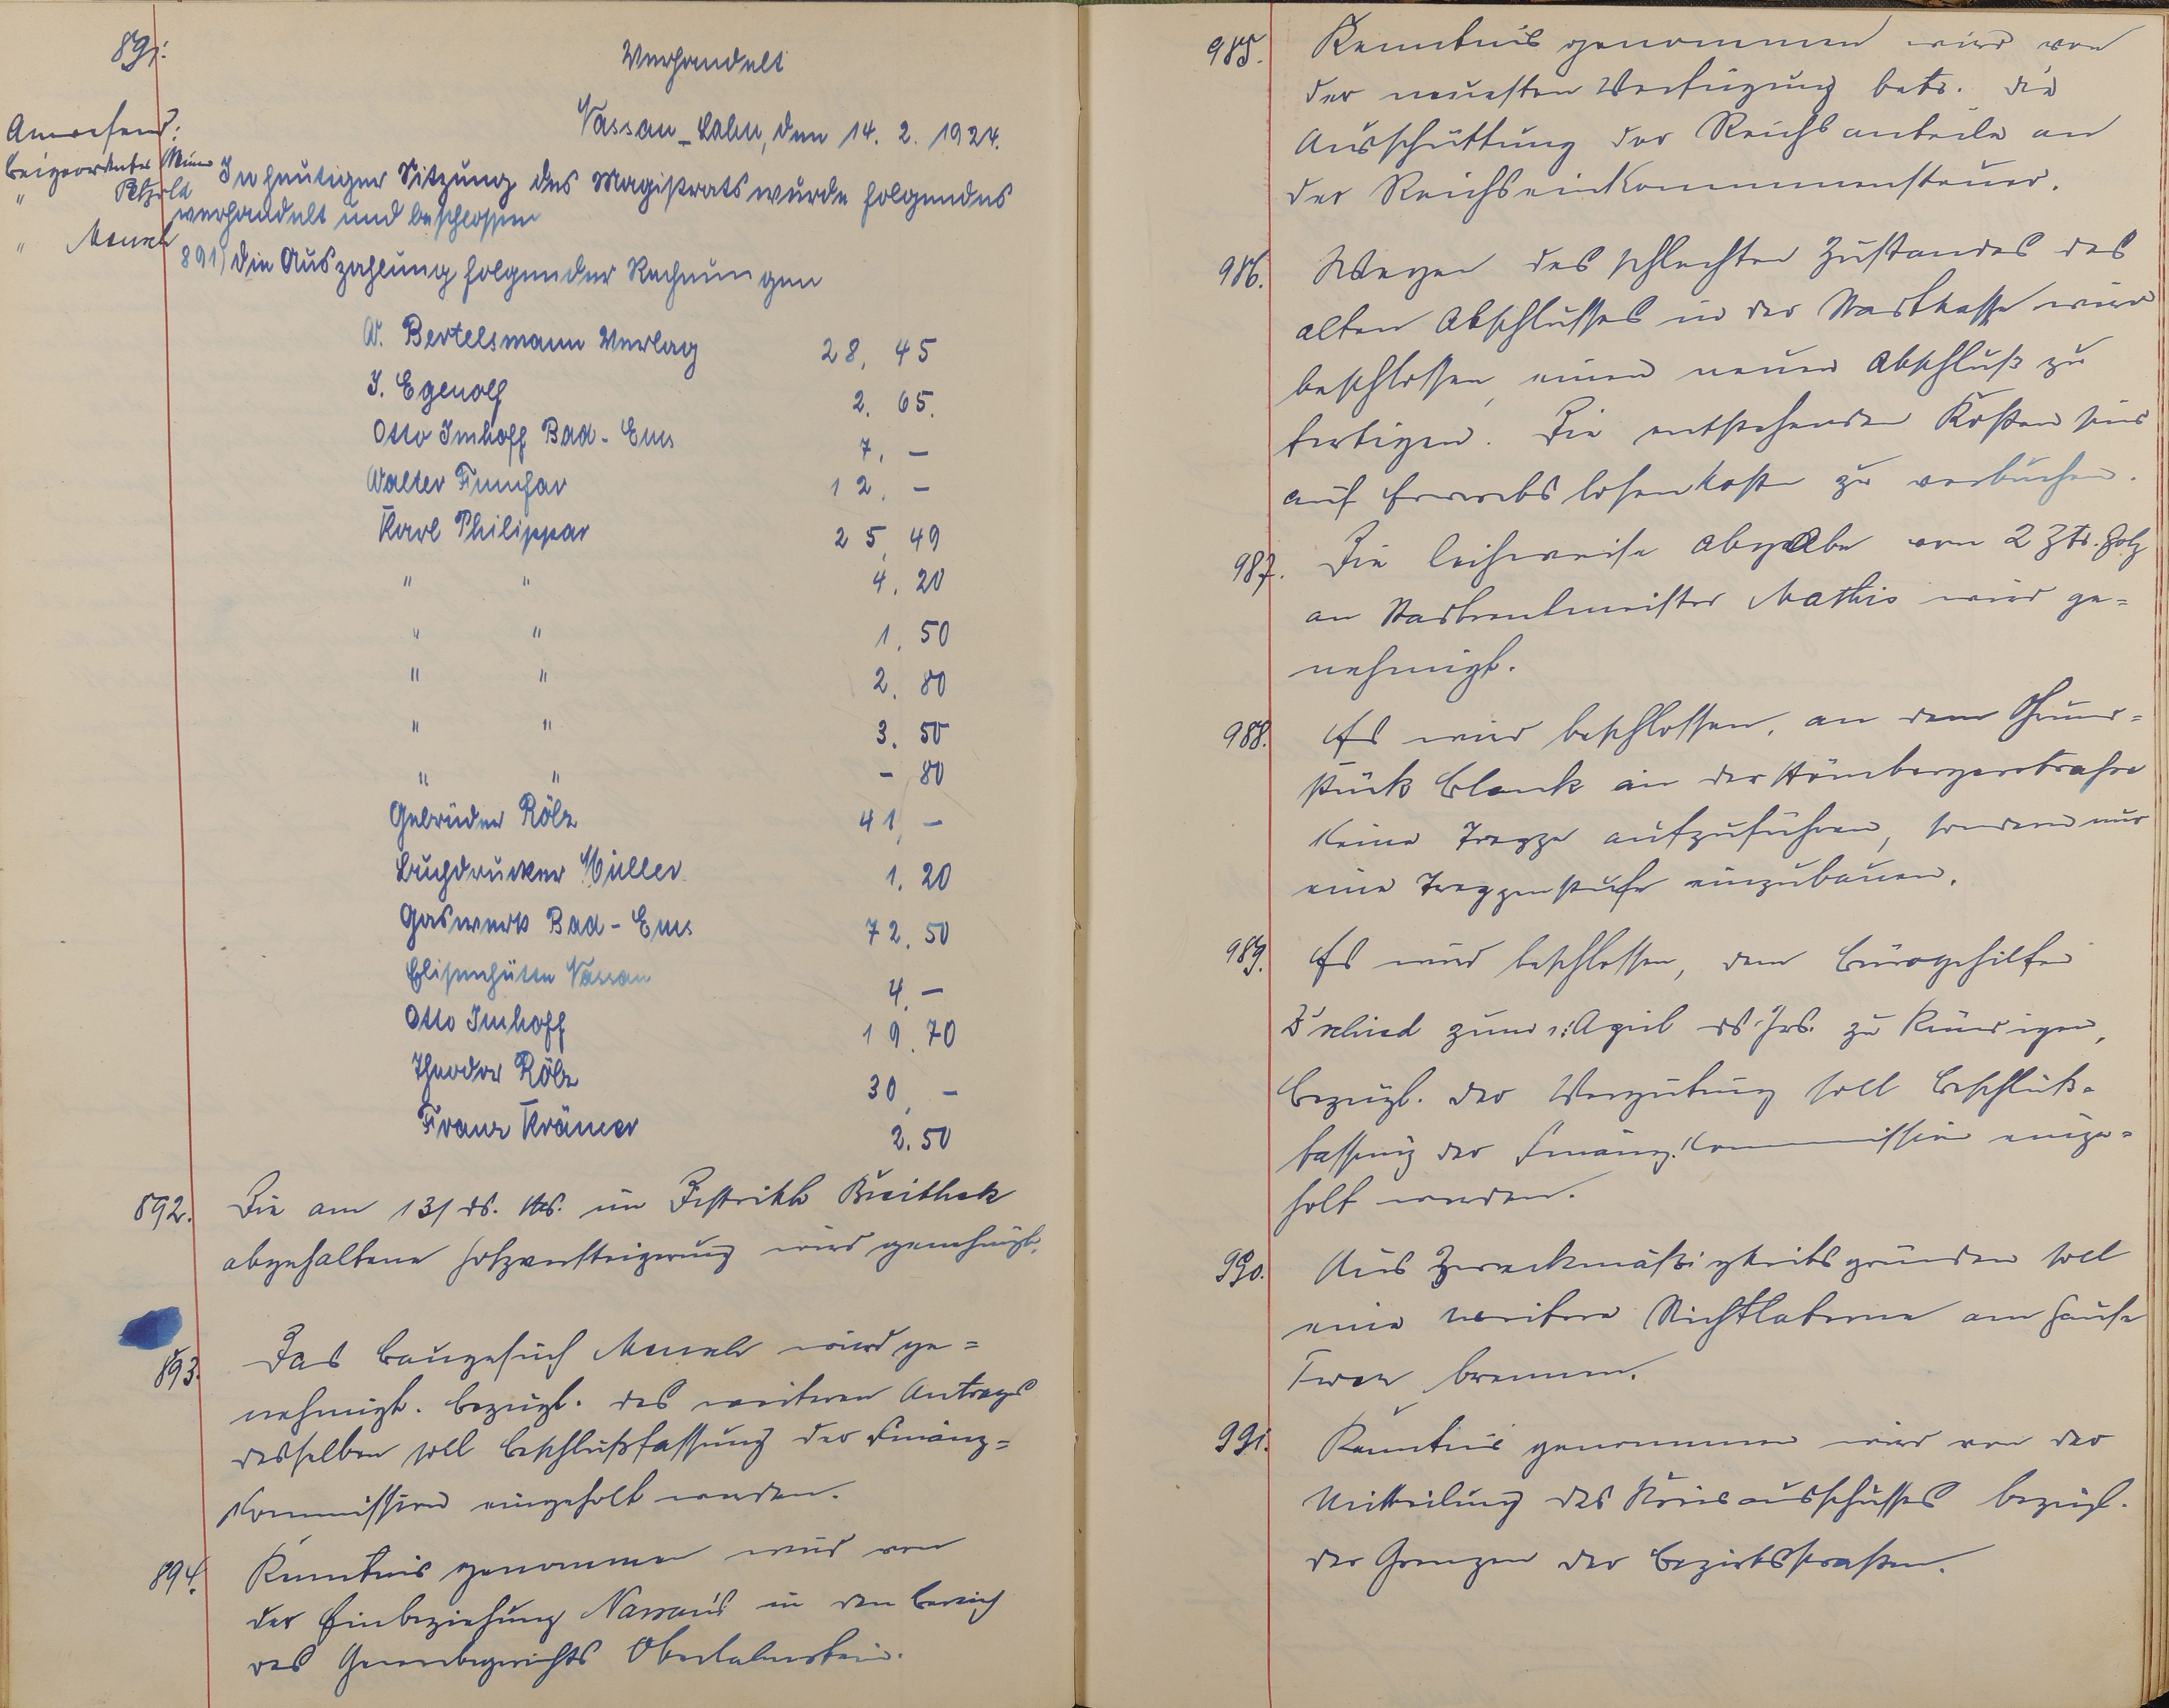 891.
Verhandelt
Nassau-Lahn, den 14. 2. 1924.
Anwesend:
Beigeordneter
" Petzold
"
In heutiger Sitzung des Magistrats wurde folgendes
verhandelt und beschlossen
891) die Auszahlung folgender Rechnungen
W. Bertelsmann Verlag 28, 45
J. Egenolf 2. 65.
Otto Imhoff Bad-Ems 7. —
Walter 12. —
Karl Philippar 25, 49
" " 4. 20
" " 1. 50
" " 2. 80
" " 3. 50
" " — 80
Gebrüder Rölz 41, —
Buchdrucker Müller 1. 20
Gaswerk Bad-Ems 72. 50
Elisenhütte Nassau 4, —
Otto Imhoff 19. 70
Theodor Rölz 30, —
Franz Krämer 2. 50
892. Die am 13/ ds. Mts. im Distrikt
abgehaltene Holzversteigerung wird genehmigt.
893. Das Baugesuch wird ge=
nehmigt. Bezügl. des weiteren Antrags
desselben soll Beschlußfassung der Finanz=
Kommission eingeholt werden.
894. Kenntnis genommen wird von
der Einbeziehung Nassau's in den Bereich
des Gewerbegerichts Oberlahnstein.
985. Kenntnis genommen wird von
der neuesten Verfügung betr. die
Ausschüttung der Reichsanteile an
der Reichseinkommensteuer.
986. Wegen des schlechten Zustandes des
alten Abschlusses in der Stadtkasse wird
beschlossen, einen neuen Abschluß zu
fertigen. Die entstehenden Kosten sind
auf Erwerbslosenkosten zu verbuchen.
987. Die leihweise Abgabe von 2 Ztr. Holz
an Stadtrentmeister Mathis wird ge=
nehmigt.
988. Es wird beschlossen, an dem Grund=
stück Blank in der Hömbergerstraße
keine Treppe aufzuführen, sondern nur
eine Treppenstufe einzubauen.
989. Es wird beschlossen, dem Bürogehilfen
zum 1. April ds. Jrs. zu kündigen,
Bezügl. der Vergütung soll Beschluß=
fassung der Finanz-Kommission einge=
holt werden.
990. Aus Zweckmäßigkeitsgründen soll
eine weitere Richtlaterne am Hause
brennen.
991. Kenntnis genommen wird von der
Mitteilung des Kreisausschusses bezügl.
der Grenzen der Bezirksstraßen.